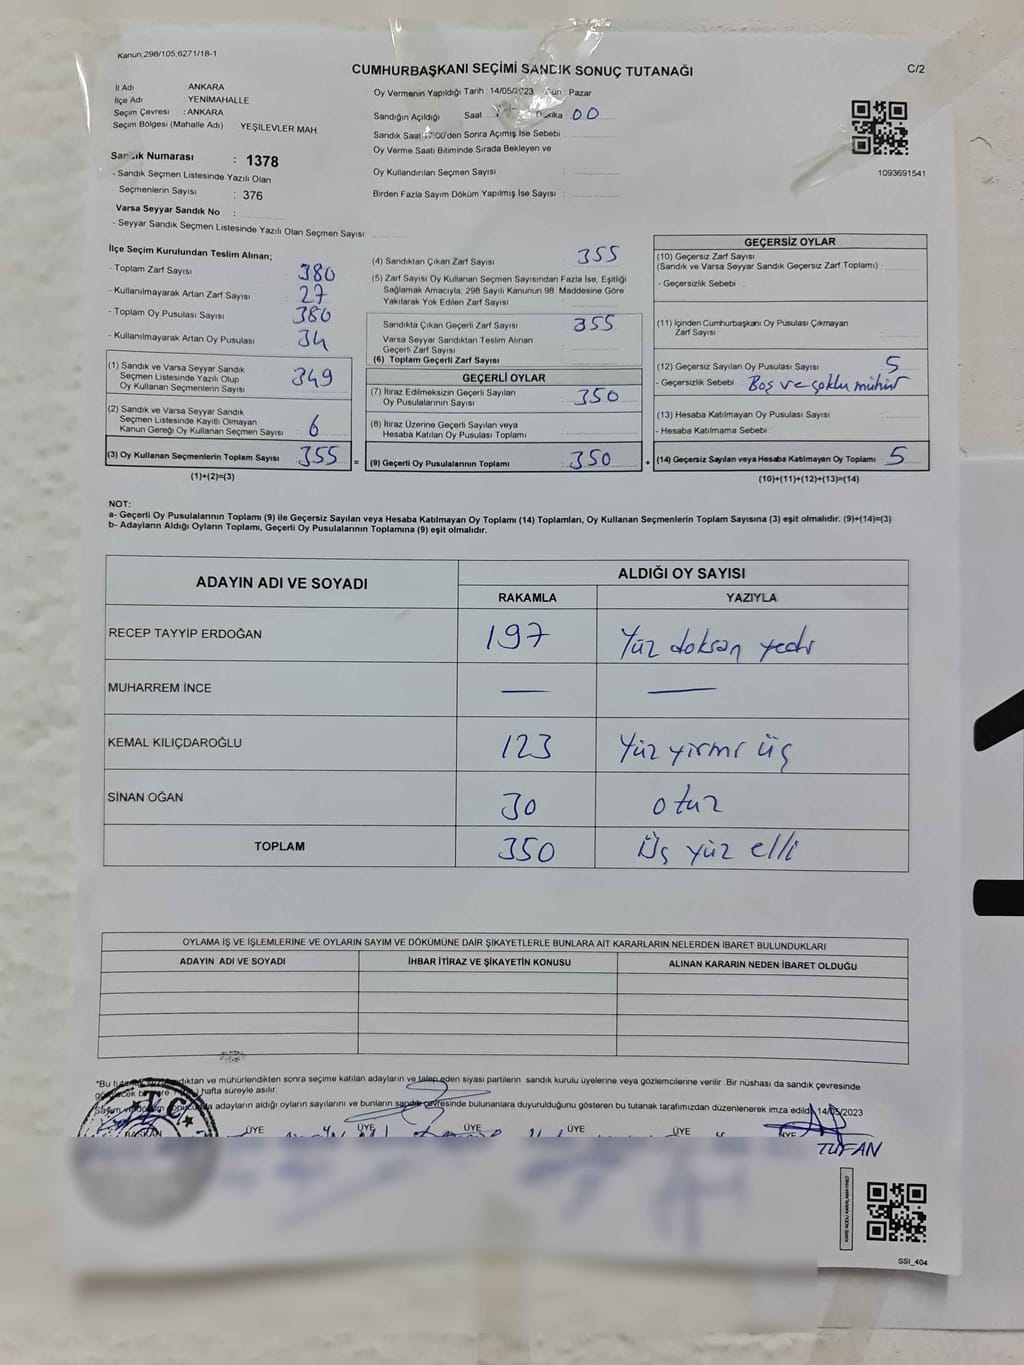 Kanun:298/105,6271/18-1
CUMHURBAŞKANI SEÇİMİ SANDIK SONUÇ TUTANAĞI
C/2
İl Adı : ANKARA
İlçe Adı : YENİMAHALLE
Seçim Çevresi : ANKARA
Seçim Bölgesi (Mahalle Adı) : YEŞİLEVLER MAH.
Oy Vermenin Yapıldığı Tarih : 14/05/2023 Gün : Pazar
Sandığın Açıldığı Saat Dakika 00
Sandık Saat 17:00'den Sonra Açımış İse Sebebi :
Oy Verme Saati Bitiminde Sırada Bekleyen ve
Oy Kullandırılan Seçmen Sayısı :
Birden Fazla Sayım Döküm Yapılmış İse Sayısı :
1093691541
Sandık Numarası : 1378
- Sandık Seçmen Listesinde Yazılı Olan
Seçmenlerin Sayısı : 376
Varsa Seyyar Sandık No :
- Seyyar Sandık Seçmen Listesinde Yazılı Olan Seçmen Sayısı:
İlçe Seçim Kurulundan Teslim Alınan;
- Toplam Zarf Sayısı : 380
- Kullanılmayarak Artan Zarf Sayısı : 27
- Toplam Oy Pusulası Sayısı : 380
- Kullanılmayarak Artan Oy Pusulası : 34
(1) Sandık ve Varsa Seyyar Sandık
Seçmen Listesinde Yazılı Olup
Oy Kullanan Seçmenlerin Sayısı : 349
(2) Sandık ve Varsa Seyyar Sandık
Seçmen Listesinde Kayıtlı Olmayan
Kanun Gereği Oy Kullanan Seçmen Sayısı : 6
(3) Oy Kullanan Seçmenlerin Toplam Sayısı : 355
(1)+(2)=(3)
(4) Sandıktan Çıkan Zarf Sayısı : 355
(5) Zarf Sayısı Oy Kullanan Seçmen Sayısından Fazla İse, Eşitliği
Sağlamak Amacıyla, 298 Sayılı Kanunun 98. Maddesine Göre
Yakılarak Yok Edilen Zarf Sayısı :
Sandıkta Çıkan Geçerli Zarf Sayısı : 355
Varsa Seyyar Sandıktan Teslim Alınan
Geçerli Zarf Sayısı :
(6) Toplam Geçerli Zarf Sayısı :
GEÇERLİ OYLAR
(7) İtiraz Edilmeksizin Geçerli Sayılan
Oy Pusulalarının Sayısı : 350
(8) İtiraz Üzerine Geçerli Sayılan veya
Hesaba Katılan Oy Pusulası Toplamı :
= (9) Geçerli Oy Pusulalarının Toplamı : 350
GEÇERSİZ OYLAR
(10) Geçersiz Zarf Sayısı
(Sandık ve Varsa Seyyar Sandık Geçersiz Zarf Toplamı) :
- Geçersizlik Sebebi :
(11) İçinden Cumhurbaşkanı Oy Pusulası Çıkmayan
Zarf Sayısı :
(12) Geçersiz Sayılan Oy Pusulası Sayısı : 5
- Geçersizlik Sebebi : Boş ve çoklu mühür
(13) Hesaba Katılmayan Oy Pusulası Sayısı :
- Hesaba Katılmama Sebebi :
+ (14) Geçersiz Sayılan veya Hesaba Katılmayan Oy Toplamı : 5
(10)+(11)+(12)+(13)=(14)
NOT:
a- Geçerli Oy Pusulalarının Toplamı (9) ile Geçersiz Sayılan veya Hesaba Katılmayan Oy Toplamı (14) Toplamları, Oy Kullanan Seçmenlerin Toplam Sayısına (3) eşit olmalıdır. (9)+(14)=(3)
b- Adayların Aldığı Oyların Toplamı, Geçerli Oy Pusulalarının Toplamına (9) eşit olmalıdır.
ADAYIN ADI VE SOYADI
ALDIĞI OY SAYISI
RAKAMLA YAZIYLA
RECEP TAYYİP ERDOĞAN 197 Yüz doksan yedi
MUHARREM İNCE — —
KEMAL KILIÇDAROĞLU 123 Yüz yirmi üç
SİNAN OĞAN 30 otuz
TOPLAM 350 Üç yüz elli
OYLAMA İŞ VE İŞLEMLERİNE VE OYLARIN SAYIM VE DÖKÜMÜNE DAİR ŞİKAYETLERLE BUNLARA AİT KARARLARIN NELERDEN İBARET BULUNDUKLARI
ADAYIN ADI VE SOYADI İHBAR İTİRAZ VE ŞİKAYETİN KONUSU ALINAN KARARIN NEDEN İBARET OLDUĞU
ve mühürlendikten sonra seçime katılan adayların ve talep eden siyasi partilerin sandık kurulu üyelerine veya gözlemcilerine verilir. Bir nüshası da sandık çevresinde
hafta süreyle asılır.
adayların aldığı oyların sayılarını ve bunların sandık çevresinde bulunanlara duyurulduğunu gösteren bu tutanak tarafımızdan düzenlenerek imza edildi. 14/05/2023
T.C.
BAŞKAN ÜYE ÜYE ÜYE ÜYE ÜYE ÜYE
TUFAN
SSI_404